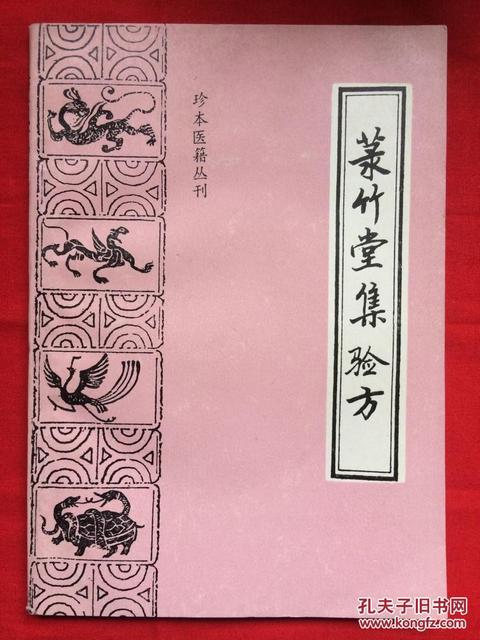 菉竹堂集验方
珍本医籍丛刊
孔夫子旧书网
www.kongfz.com